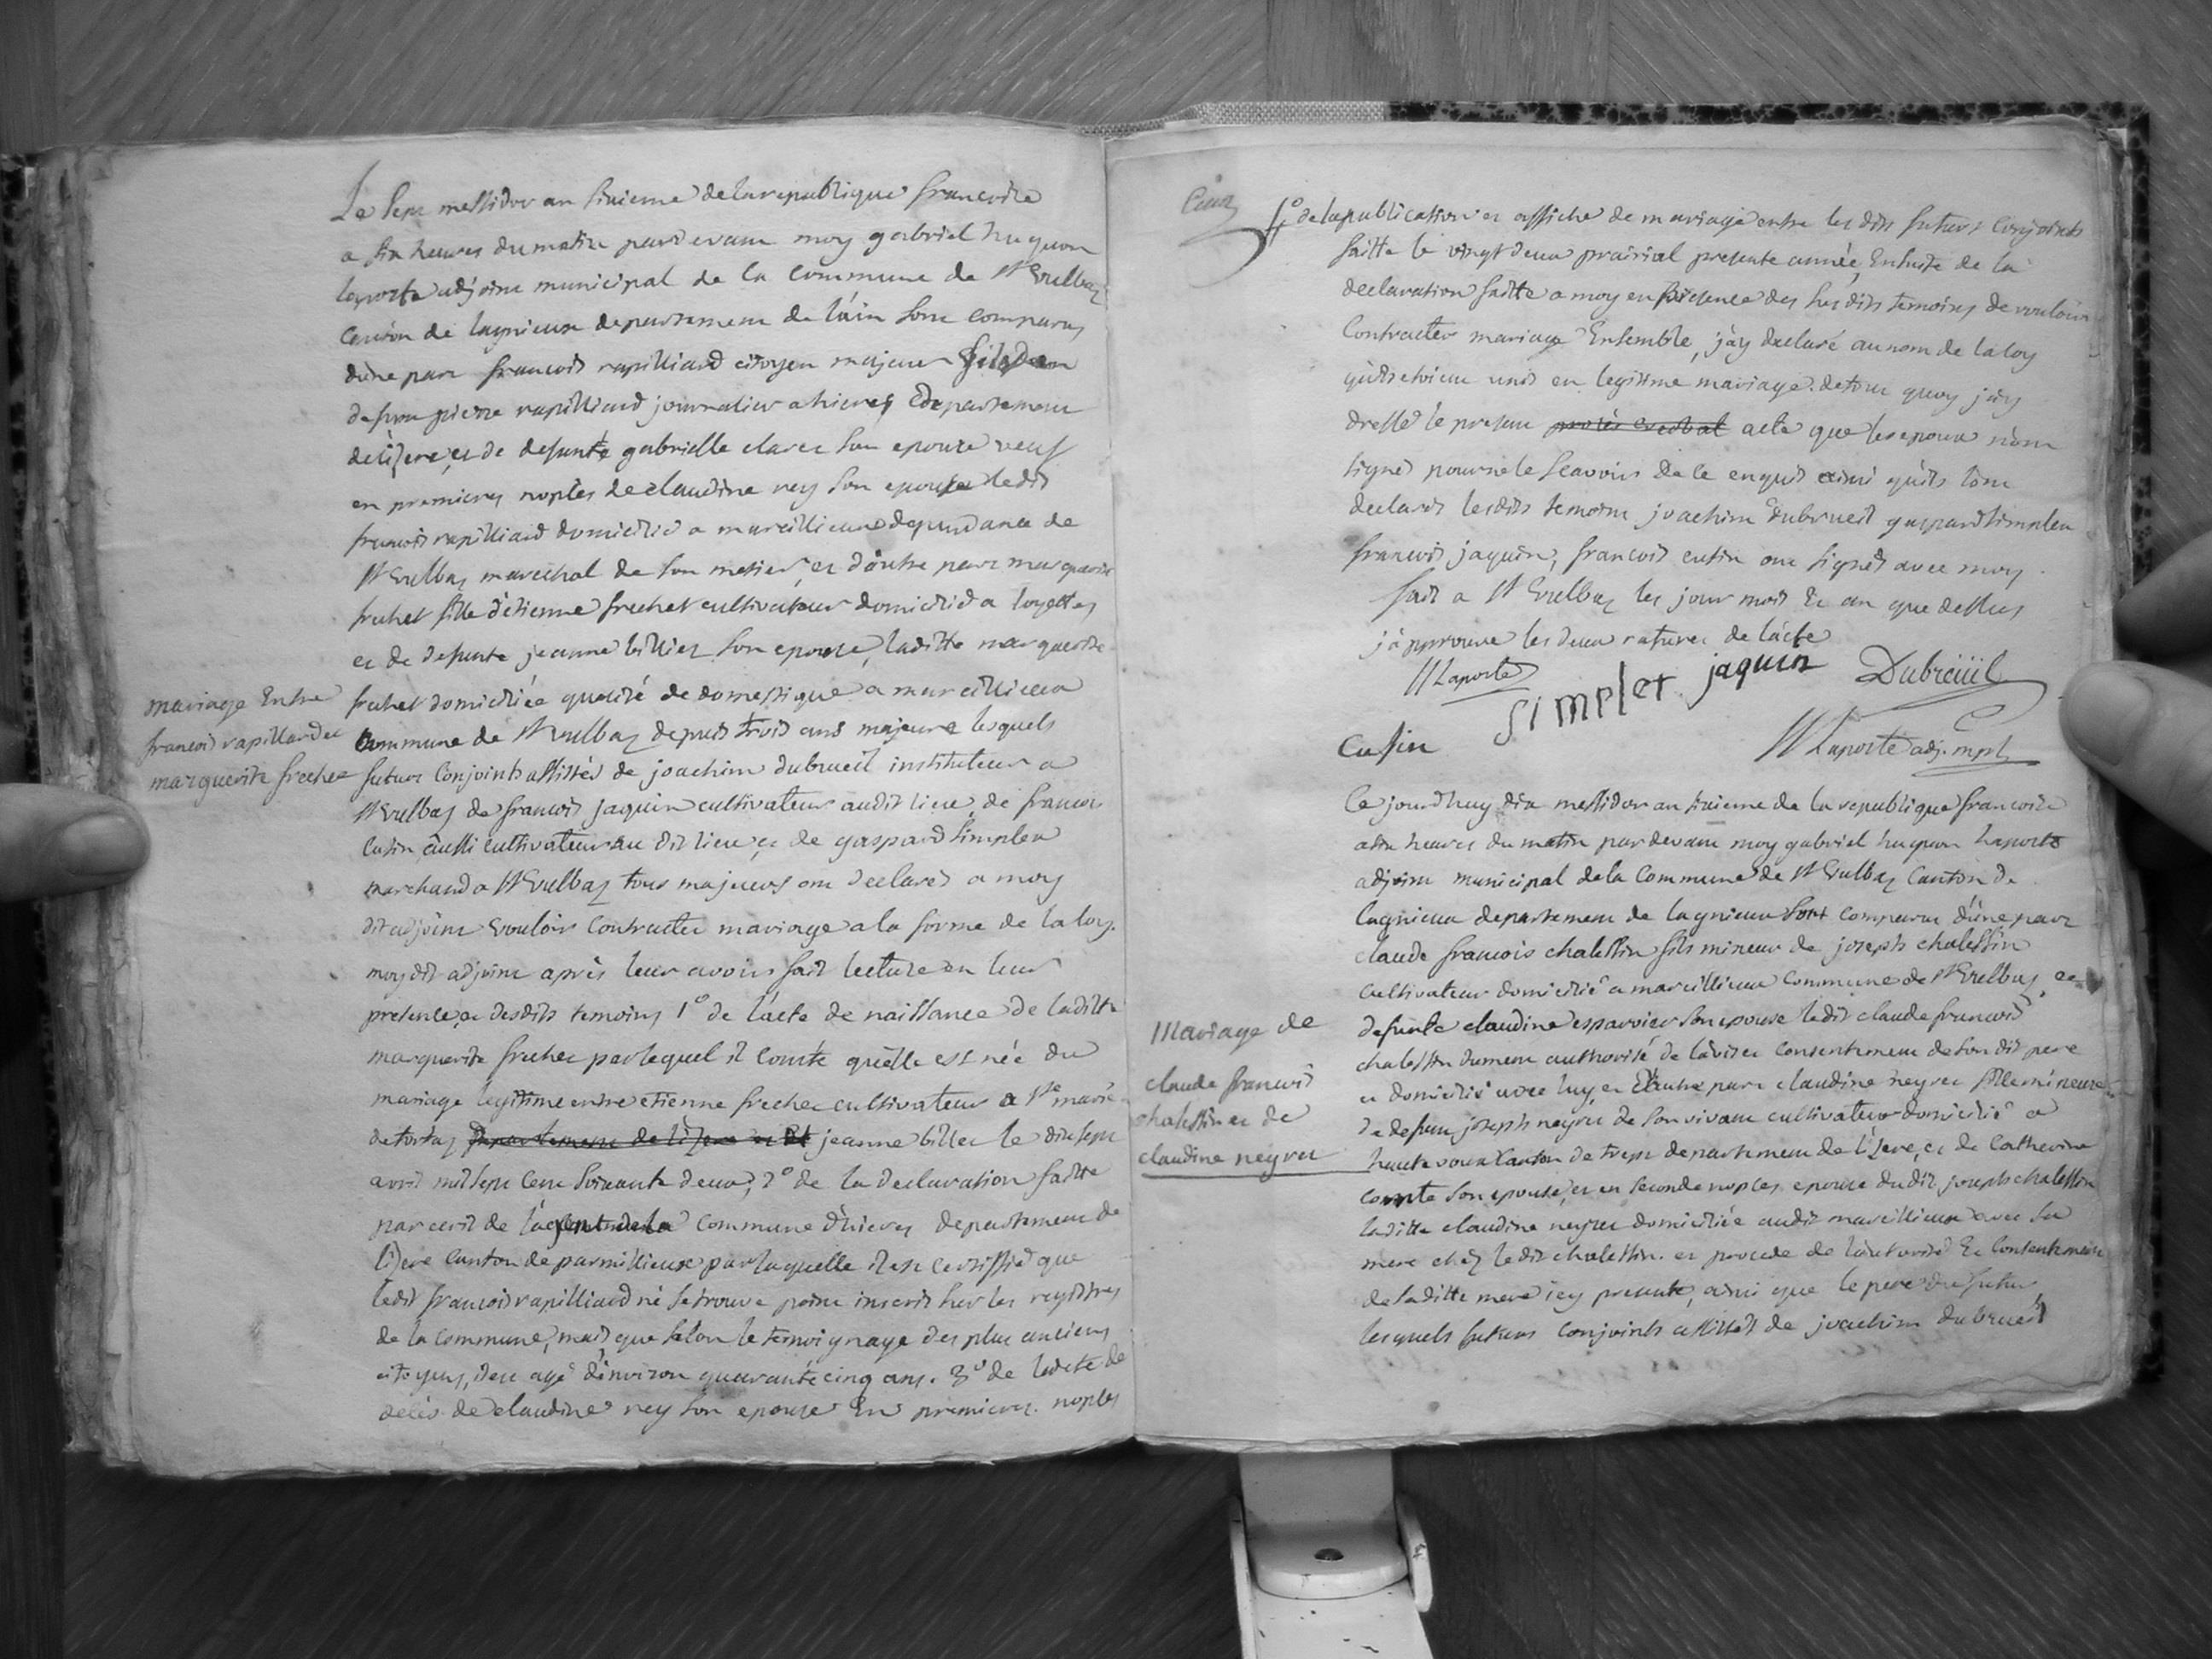 Le sept messidor an sixieme de la republique francoise
a six heures du matin pard evant moy gabriel huguon
laporte adjoint municipal de la Commune de St Vulbaz
Canton de lagnieux departement de l'ain sont comparus
d'une part francois rapilliard citoyen majeur fils de
defunt pierre rapilliard journalier a hieres departement
de l'isere, et de defunte gabrielle claret son epouse veuf
en premieres noples de claudine rey son epouse ledit
francois rapilliard domicilié a marcillieux dependance de
St Vulbaz marechal de son metier, et d'autre part marguerite
frechet fille d'etienne frechet cultivateur domicilié a loyettes
et de defunte jeanne billiez son epouse, laditte marguerite
frechet domiciliée qualité de domestique a marcillieux
Commune de St Vulbaz depuis trois ans majeure lesquels
futurs Conjoints assistés de joachim dubrueil instituteur a
St Vulbas de francois jaquin cultivateur audit lieu, de francois
Cusin aussi cultivateur au dit lieu et de gaspard simplex
marchand a St Vulbaz tous majeurs ont declarés a moy
dit adjoint vouloir Contracter mariage a la forme de la loy.
moy dit adjoint après leur avoir fait lecture en leur
presence, et desdits temoins 1° de l'acte de naissance de laditte
marguerite frechet par lequel il conste quelle est née du
mariage legitime entre etienne frechet cultivateur a Ste marie
de tortas departement de l'isere et de jeanne billet le dix sept
avril mil sept cent soixante deux, 2° de la declaration faitte
par ecrit de l'agent de la commune d'hieres departement de
l'isere Canton de parmillieux par laquelle il est certiffié que
ledit francois rapilliard né se trouve point inscrit sur les registres
de la commune, mais que selon le temoignage des plus anciens
citoyens, il est agé d'environ quarante cinq ans. 3° de l'acte de
décès de claudine rey son epouse En premieres noples
mariage Entre
francois rapillard et
marguerite frechet
4° de la publication et affiche de mariage entre les dits futurs conjoints
faitte le vingt deux prairial presente année, Ensuite de la
declaration faitte a moy en presence des susdits temoins de vouloir
Contracter mariage Ensemble, j'ay declaré au nom de la loy
qu'ils etoient unis en legitime mariage. de tout quoy j'ay
dressé le present procès verbal acte que les epoux n'ont
signés pour ne le scavoir de ce enquis ainsi qu'ils l'ont
declarés lesdits temoins joachim dubrueil gaspard simplex
francois jaquin, francois cusin ont signés avec moy.
fait a St Vulbaz les jour mois Et an que dessus
j'approuve les deux ratures de l'acte
HLaporte simplet jaquin Dubreüil
Cusin HLaporte adj. mpl
Ce jourdhuy dix messidor an sixieme de la republique francoise
a six heures du matin par devant moy gabriel huguon laporte
adjoint municipal dela Commune de St Vulbaz Canton de
lagnieux departement de lagnieux sont comparus d'une part
claude francois chalessin fils mineur de joseph chalessin
cultivateur domicilié a marcillieux commune de St Vulbas, et
defunte claudine esparvier son epouse ledit claude francois
chalessin dument authorisé de l'avis et consentement de son dit pere
et domicilié avec luy, et d'autre part claudine neyret fille mineure
de defunt joseph neyret de son vivant cultivateur domicilié a
Canton de trept departement de l'isere, et de Catherine
Compte son epouse, et en seconde noples epouse du dit joseph chalessin
laditte claudine neyret domiciliée audit marcillieux avec sa
mere chez ledit chalessin. et procede de l'autorité Et Consentement
de laditte mere icy presente, ainsi que le pere du futur,
lesquels futurs conjoints assistés de joachim dubrueil
Mariage de
claude francois
chalessin et de
claudine neyret